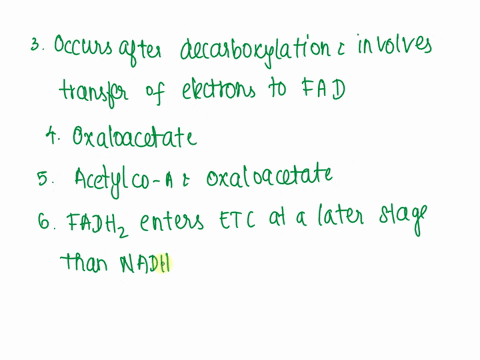 3. Occurs after decarboxylation & involves
transfer of electrons to FAD
4. Oxaloacetate
5. Acetylco-A & oxaloacetate
6. FADH₂ enters ETC at a later stage
than NADH